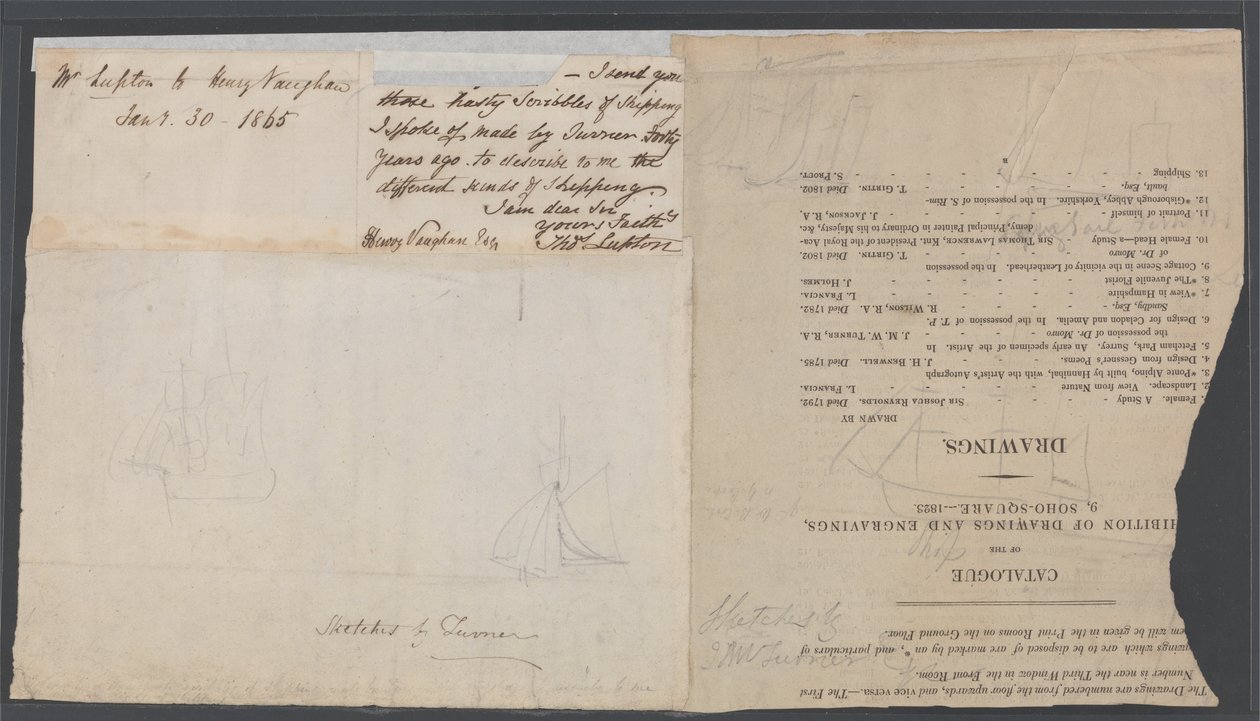 Mr Lupton to Henry Vaughan
Jany. 30 - 1865
— I send you
those hasty Scribbles of Shipping
I spoke of made by Turner Forty
Years ago. to describe to me the
different kinds of Shipping.
I am dear Sir
Yours Faithy
Henry Vaughan Esq
Thos. Lupton
Sketches by Turner
Sketches by
J M W Turner
Ship
The Drawings are numbered from the floor upwards, and vice versa.—The First
Number is near the Third Window in the Front Room.
wings which are to be disposed of are marked by an *, and particulars of
em will be given in the Print Rooms on the Ground Floor.
CATALOGUE
OF THE
HIBITION OF DRAWINGS AND ENGRAVINGS,
9, SOHO-SQUARE.—1823.
DRAWINGS.
DRAWN BY
1. Female. A Study - - - SIR JOSHUA REYNOLDS. Died 1792.
2. Landscape. View from Nature - - - L. FRANCIA.
3. *Ponte Alpino, built by Hannibal, with the Artist's Autograph
4. Design from Gessner's Poems. - - J. H. BENWELL. Died 1785.
5. Fetcham Park, Surrey. An early specimen of the Artist. In
the possession of Dr. Monro - - - J. M. W. TURNER, R.A.
6. Design for Celadon and Amelia. In the possession of T. P.
Sandby, Esq. - - - R. WILSON, R.A. Died 1782.
7. *View in Hampshire - - - L. FRANCIA.
8. *The Juvenile Florist - - - J. HOLMES.
9. Cottage Scene in the vicinity of Leatherhead. In the possession
of Dr. Monro - - - T. GIRTIN. Died 1802.
10. Female Head—a Study - SIR THOMAS LAWRENCE, Knt. President of the Royal Aca-
demy, Principal Painter in Ordinary to his Majesty, &c.
11. Portrait of himself - - - J. JACKSON, R.A.
12. *Gisborough Abbey, Yorkshire. In the possession of S. Rim-
bault, Esq. - - - T. GIRTIN. Died 1802.
13. Shipping - - - S. PROUT.
B